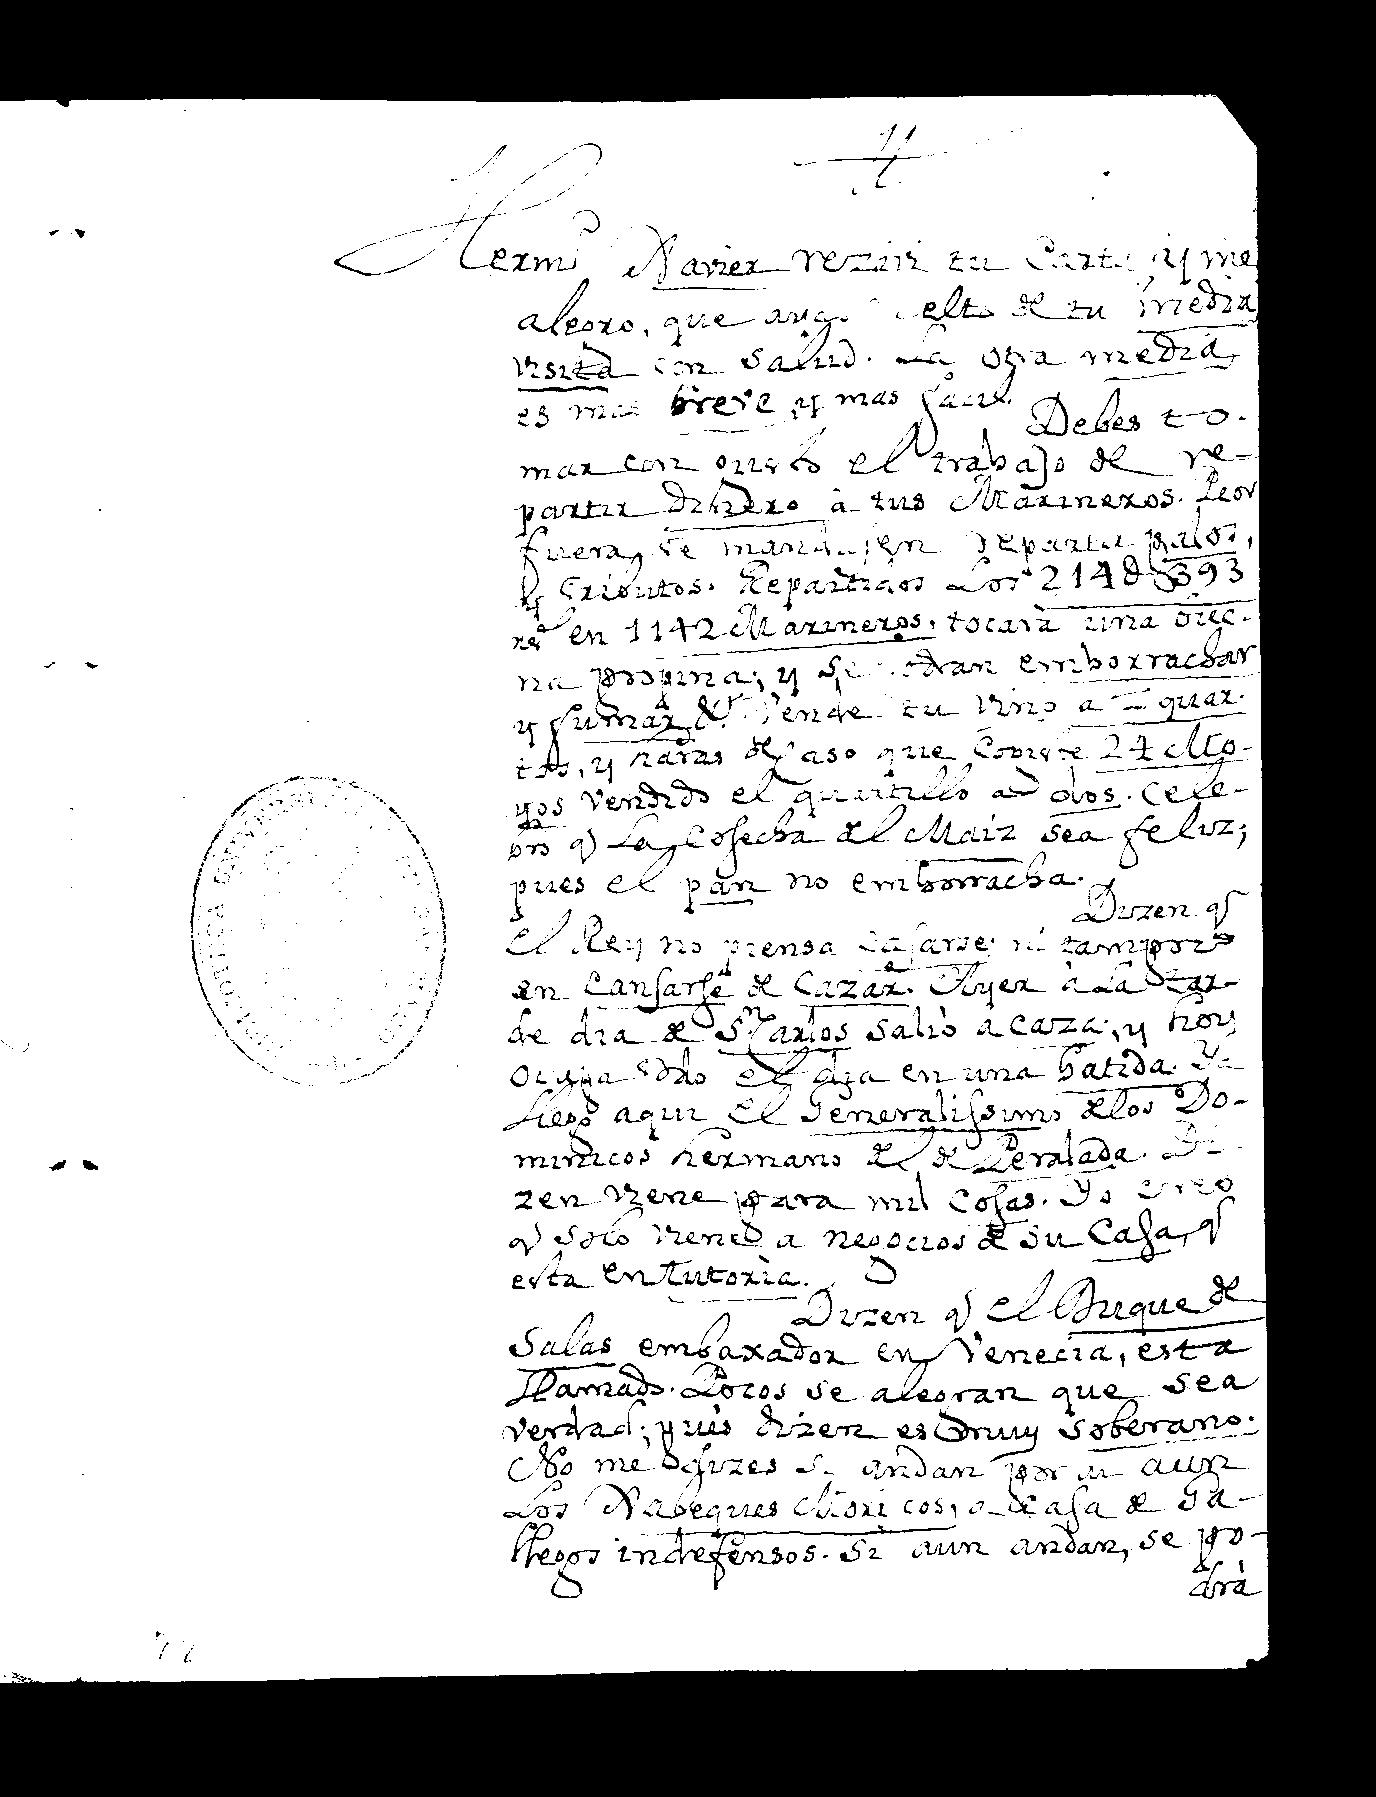 Herm.º Xavier rezivi tu Carta, y me
alegro, que ayas buelto de tu media
visita con salud. La otra media,
es mas breve, y mas facil.
Debes to-
mar con gusto el trabajo de re-
partir dinero à tus Marineros. Peor
fuera, te mandasen repartir palos,
y tributos. Repartidos Los 214 393
rs en 1142 Marineros, tocarà una Diec-
na propina; y se podran emborrachar
y fumar &c. Vende tu vino a quar-
tos, y haras de caso que Copiste 24 Mo-
yos vendido el quartillo a dos. Cele-
bro q La Cosecha del Maiz sea feliz;
pues el pan no emborracha.
Dizen q
el Rey no piensa Casarse, ni tampoco
en Cansarse de Cazar. Ayer à la tar-
de dia de Sn Carlos saliò à caza, y hoy
Ocupa todo el dia en una batida. Ya
Llegò aqui el Generalissimo de los Do-
minicos hermano del de Peralada. Di-
zen viene para mil Cosas. Yo creo
q solo viene a negocios de su Casa, q
esta en tutoria.
Dizen q el Duque de
Salas embaxador en Venecia, esta
llamado. Pocos se alegran que sea
verdad; pues dizen es muy soberano.
No me dizes si andan por ai aun
Los Xabeques Moriscos, o Casa de Ga-
llegos indefensos. Si aun andan, se po-
drà